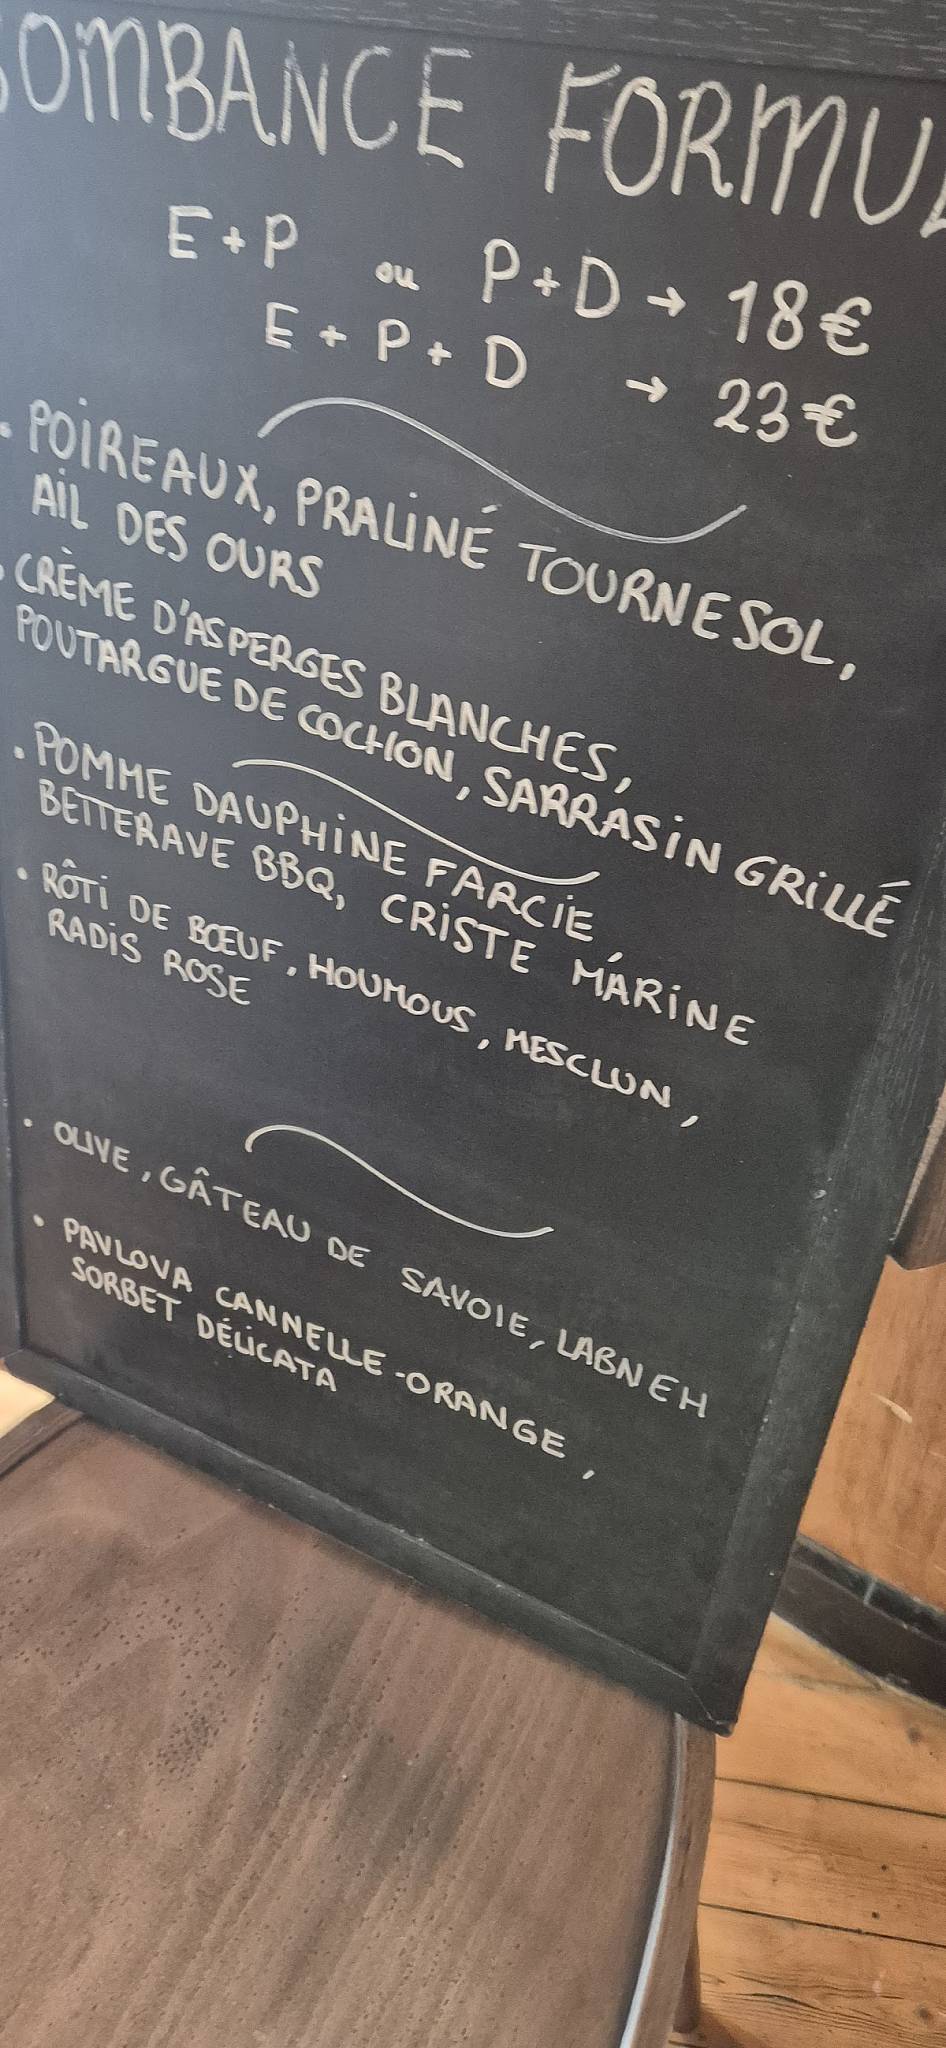 OMBANCE FORMU
E + P ou P + D → 18€
E + P + D → 23€
• POIREAUX, PRALINÉ TOURNESOL,
AIL DES OURS
• CRÈME D'ASPERGES BLANCHES,
POUTARGUE DE COCHON, SARRASIN GRILLÉ
• POMME DAUPHINE FARCIE,
BETTERAVE BBQ, CRISTE MARINE
• RÔTI DE BŒUF, HOUMOUS, MESCLUN,
RADIS ROSE
• OLIVE, GÂTEAU DE SAVOIE, LABNEH
• PAVLOVA CANNELLE-ORANGE,
SORBET DÉLICATA